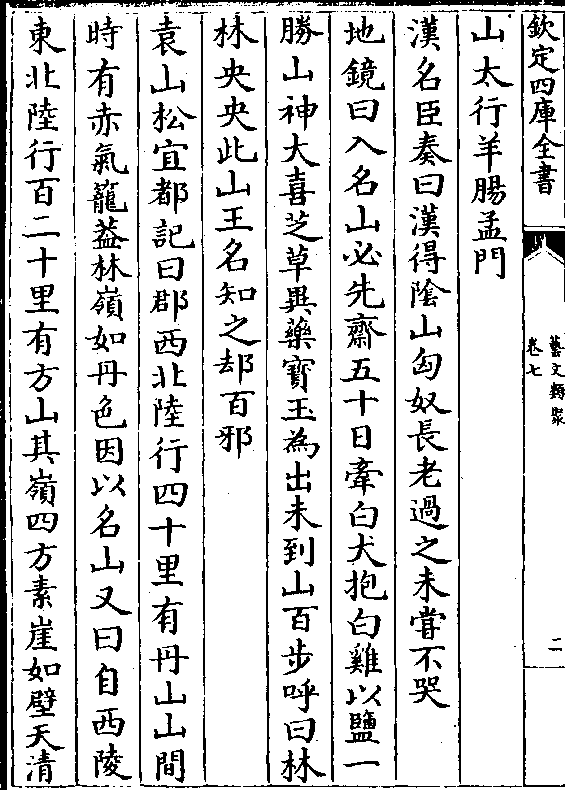 欽定四庫全書
藝文類聚
卷七
二
山太行羊腸孟門
漢名臣奏曰漢得隂山匈奴長老過之未甞不哭
地鏡曰入名山必先齋五十日牽白犬抱白雞以鹽一
勝山神大喜芝草異藥寳玉為出未到山百步呼曰林
林央央此山王名知之却百邪
袁山松宜都記曰郡西北陸行四十里有丹山山間
時有赤氣籠葢林嶺如丹色因以名山又曰自西陵
東北陸行百二十里有方山其嶺四方素崖如壁天清